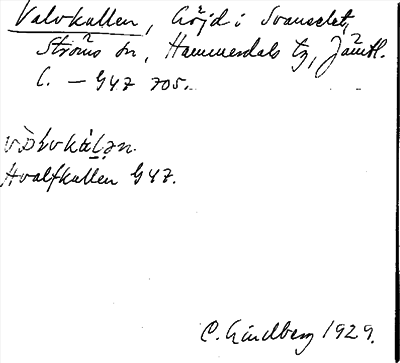 Valvkallen, höjd i Svanselet,
Ströms sn, Hammerdals tg, Jämtl.
l. — G47 705.
vɔlvkáḷən.
Hvalfkallen G47.
C. Lindberg 1929.